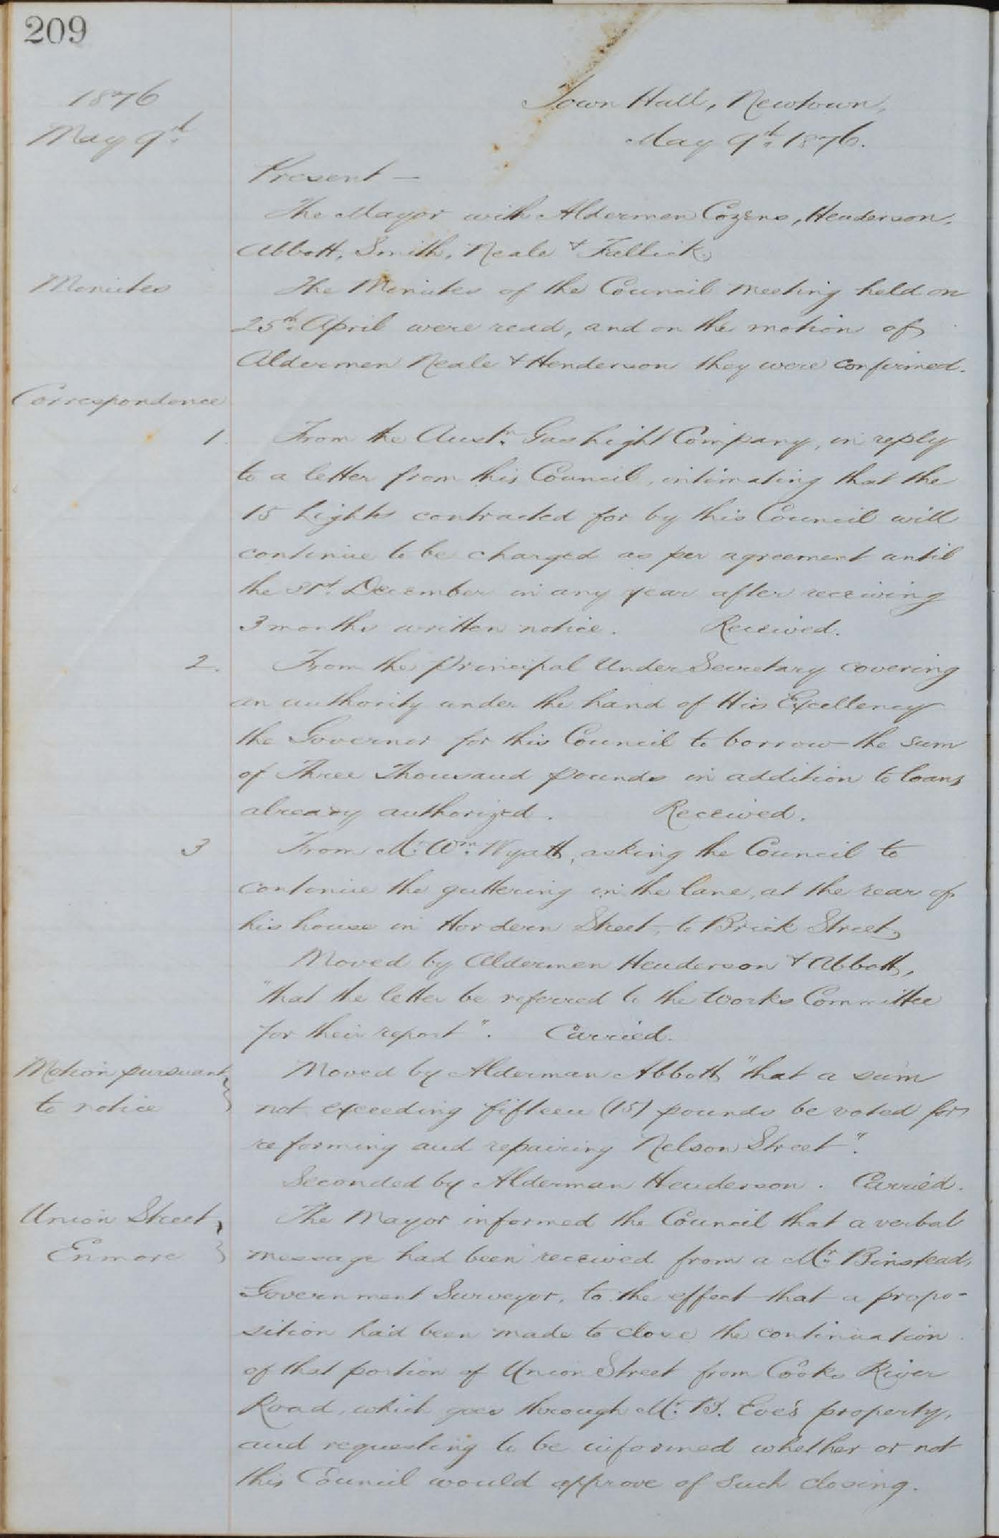 209
1876
May 9th
Town Hall, Newtown,
May 9th 1876.
Present —
The Mayor with Aldermen Cozens, Henderson,
Abbott, Smith, Neale & Fallick.
Minutes
The Minutes of the Council meeting held on
25th April were read, and on the motion of
Aldermen Neale & Henderson they were confirmed.
Correspondence
1.
From the Austn. Gas Light Company, in reply
to a letter from this Council, intimating that the
15 Lights contracted for by this Council will
continue to be charged as per agreement until
the 31st December in any year after receiving
3 months written notice. Received.
2.
From the Principal Under Secretary covering
an authority under the hand of His Excellency
the Governor for this Council to borrow the sum
of Three Thousand pounds in addition to loans
already authorized. Received.
3
From Mr. Wm. Wyatt, asking the Council to
continue the guttering in the lane, at the rear of
his house in Hordern Street, to Brick Street,
Moved by Aldermen Henderson & Abbott,
"that the letter be referred to the Works Committee
for their report". Carried.
Motion pursuant
to notice
Moved by Alderman Abbott, "that a sum
not exceeding fifteen (15) pounds be voted for
reforming and repairing Nelson Street".
Seconded by Alderman Henderson. Carried.
Union Street,
Enmore
The Mayor informed the Council that a verbal
message had been received from a Mr. Binstead,
Government Surveyor, to the effect that a propo-
sition had been made to close the continuation
of that portion of Union Street from Cooks River
Road, which goes through Mr. Eve's property,
and requesting to be informed whether or not
this Council would approve of such closing.